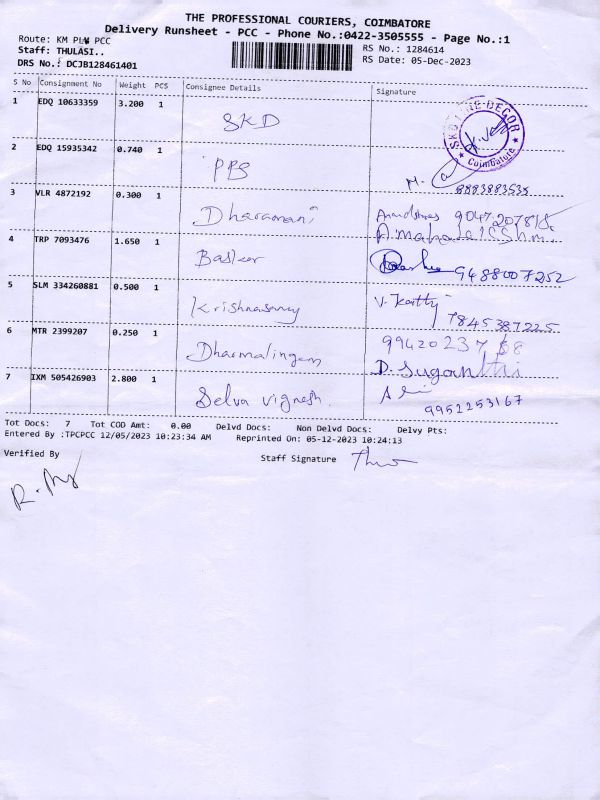 THE PROFESSIONAL COURIERS, COIMBATORE
Delivery Runsheet - PCC - Phone No.:0422-3505555 - Page No.:1
Route: KM PCC
Staff: THULASI..
DRS No.: DCJB128461401
RS No.: 1284614
RS Date: 05-Dec-2023
S No Consignment No Weight PCS Consignee Details Signature
1 EDQ 10633359 3.200 1 SKD
Coimbatore
2 EDQ 15935342 0.740 1 PPS
8883883535
3 VLR 4872192 0.300 1 Dharamani 9047207818
4 TRP 7093476 1.650 1 Baskar 9488007252
5 SLM 334260881 0.500 1 Krishnasamy
7845387225
6 MTR 2399207 0.250 1 Dharmalingam
D. Suganthi
7 IXM 505426903 2.800 1 Selva vignesh.
9952253167
Tot Docs: 7 Tot COD Amt: 0.00 Delvd Docs: Non Delvd Docs: Delvy Pts:
Entered By :TPCPCC 12/05/2023 10:23:34 AM Reprinted On: 05-12-2023 10:24:13
Verified By
Staff Signature